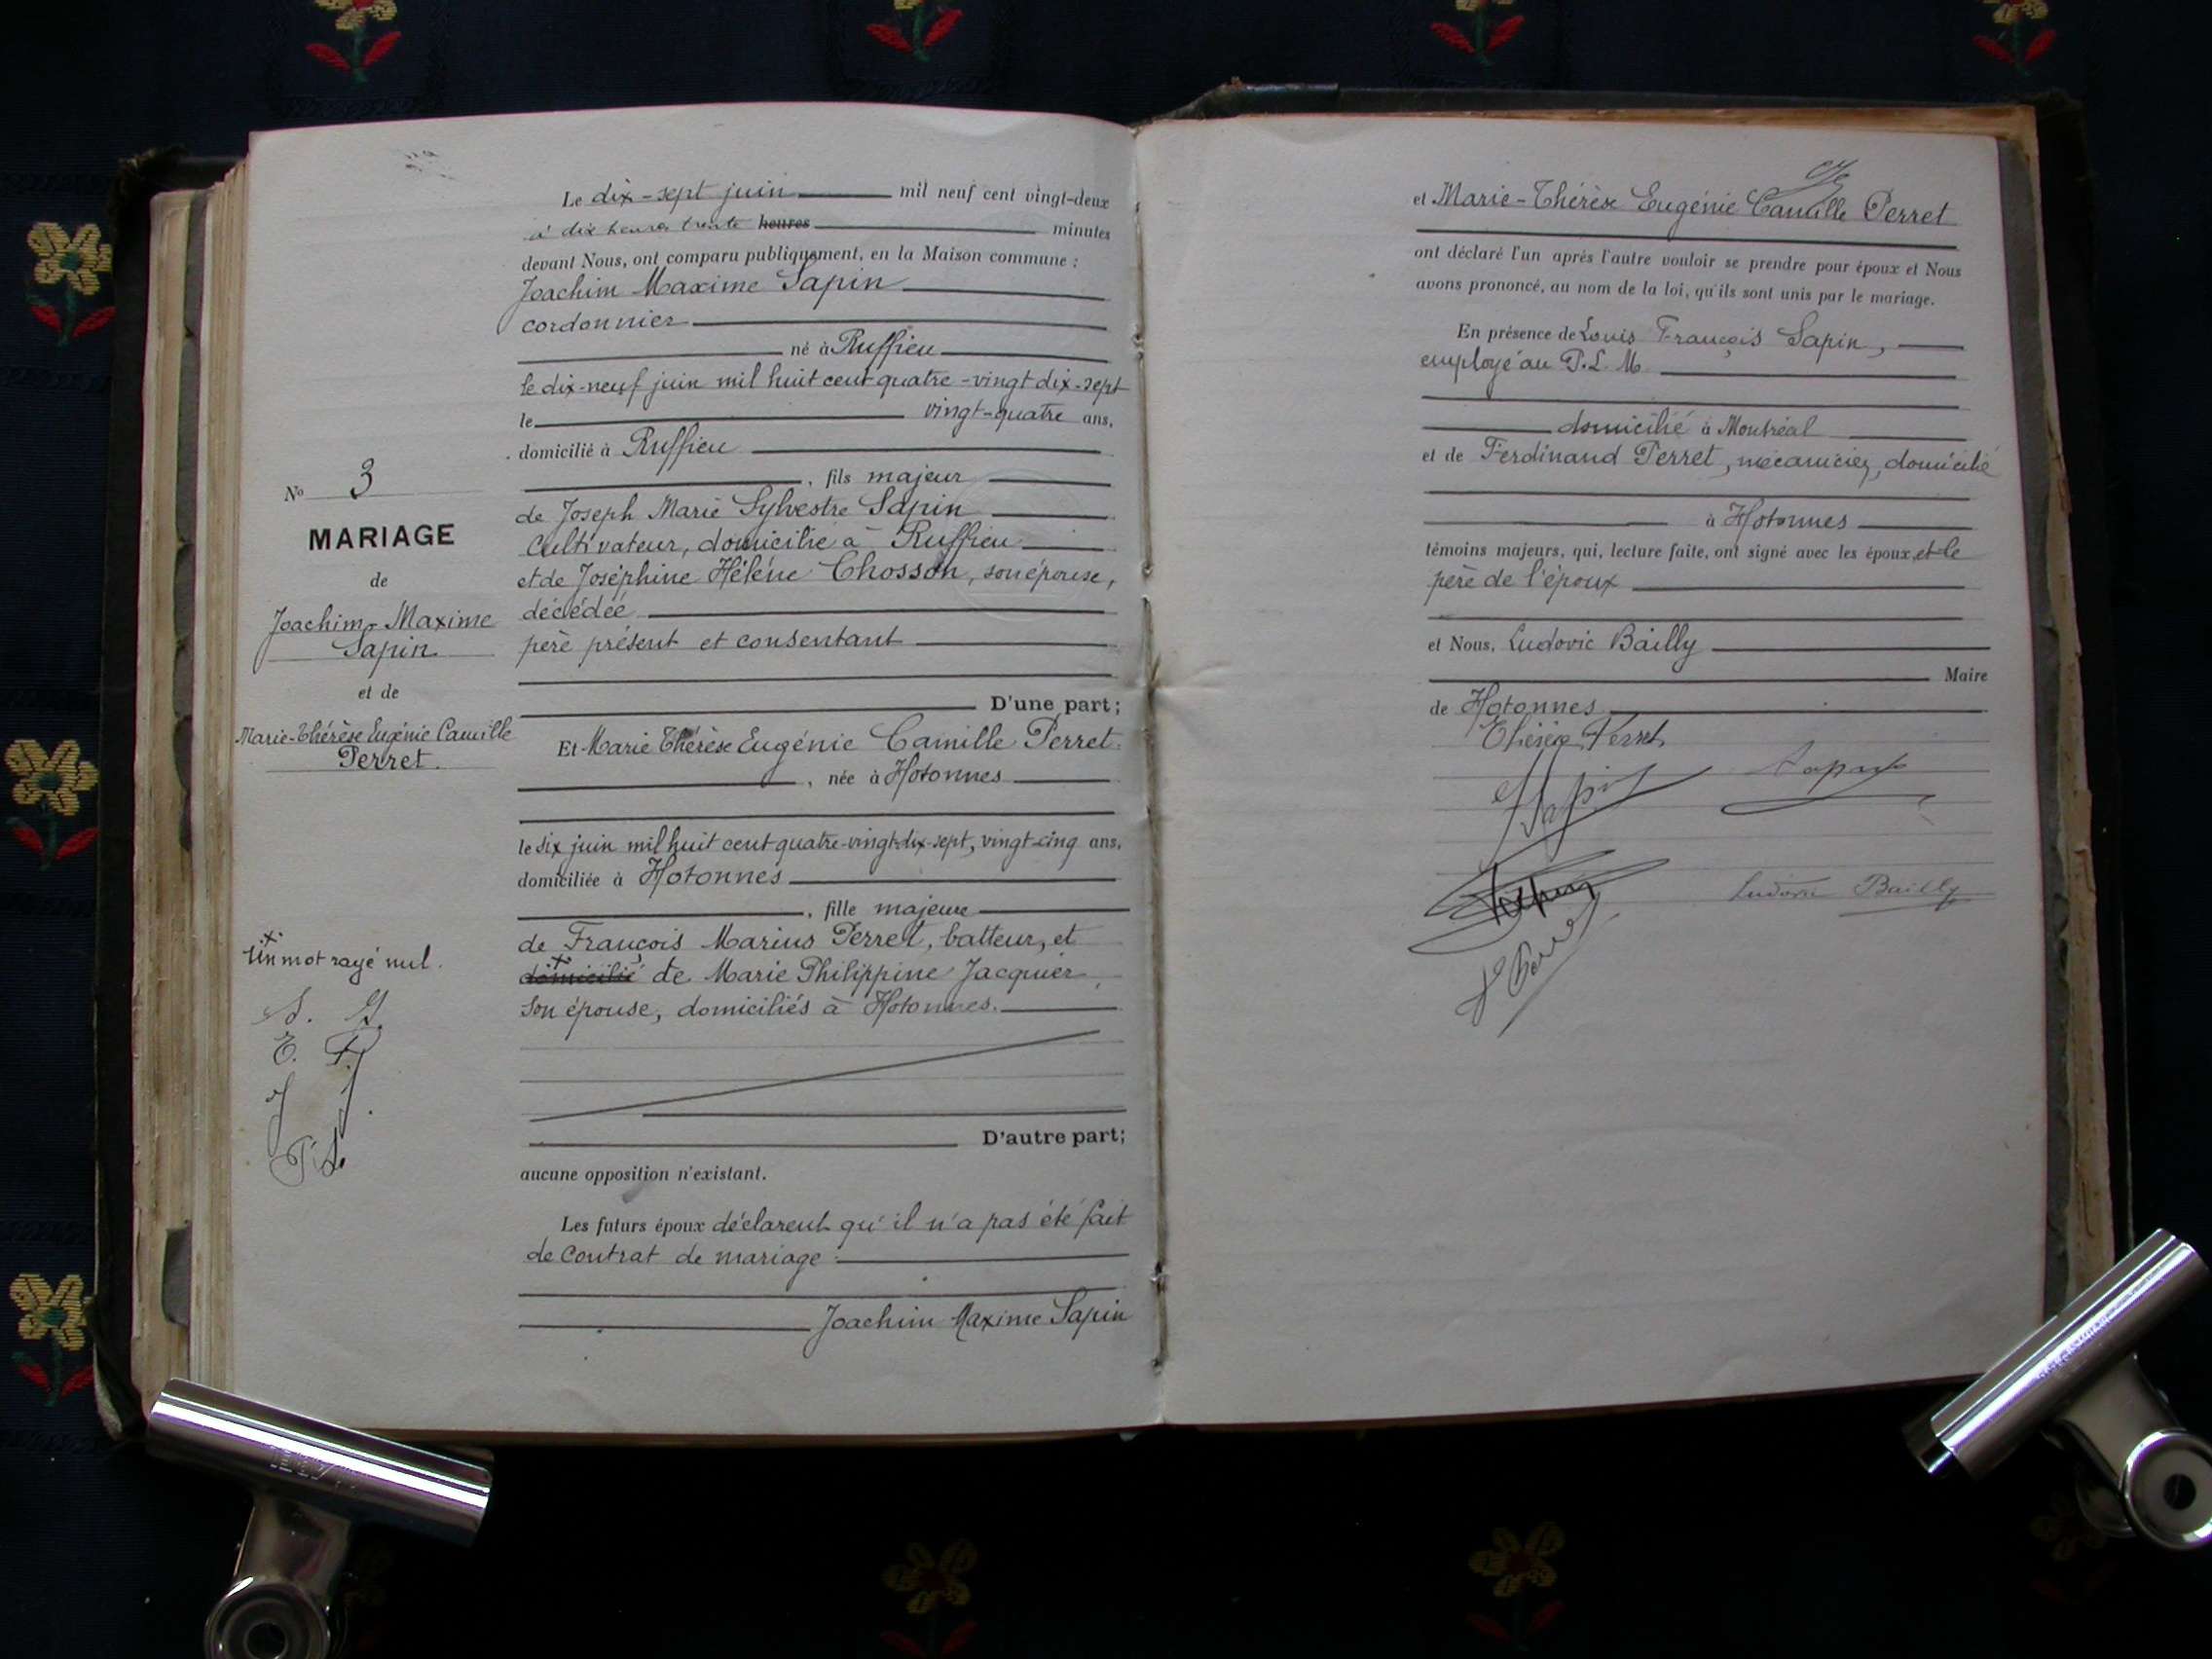 Le dix-sept juin mil neuf cent vingt-deux
à dix heures trente heures minutes
devant Nous, ont comparu publiquement, en la Maison commune :
Joachim Maxime Sapin
cordonnier
né à Ruffieu
le dix-neuf juin mil huit cent quatre-vingt dix-sept
le vingt-quatre ans,
domicilié à Ruffieu
, fils majeur
de Joseph Marie Sylvestre Sapin
cultivateur, domicilié à Ruffieu
et de Joséphine Hélène Chosson, son épouse,
décédée
père présent et consentant
D'une part;
Et Marie Thérèse Eugénie Camille Perret
, née à Hotonnes
le six juin mil huit cent quatre-vingt-dix-sept, vingt-cinq ans,
domiciliée à Hotonnes
, fille majeure
de François Marius Perret, batteur, et
domicilié de Marie Philippine Jacquier,
son épouse, domiciliés à Hotonnes.
D'autre part;
aucune opposition n'existant.
Les futurs époux déclarent qu'il n'a pas été fait
de contrat de mariage
Joachim Maxime Sapin
No 3
MARIAGE
de
Joachim-Maxime
Sapin
et de
Marie-Thérèse Eugénie Camille
Perret.
Un mot rayé nul.
et Marie-Thérèse Eugénie Camille Perret
ont déclaré l'un après l'autre vouloir se prendre pour époux et Nous
avons prononcé, au nom de la loi, qu'ils sont unis par le mariage.
En présence de Louis François Sapin,
employé au P.L.M
domicilié à Montréal
et de Ferdinand Perret, mécanicien, domicilié
à Hotonnes
témoins majeurs, qui, lecture faite, ont signé avec les époux et le
père de l'époux
et Nous, Ludovic Bailly
Maire
de Hotonnes
Thérèse Perret
Sapin
Sapin
Sapin
Ludovic Bailly